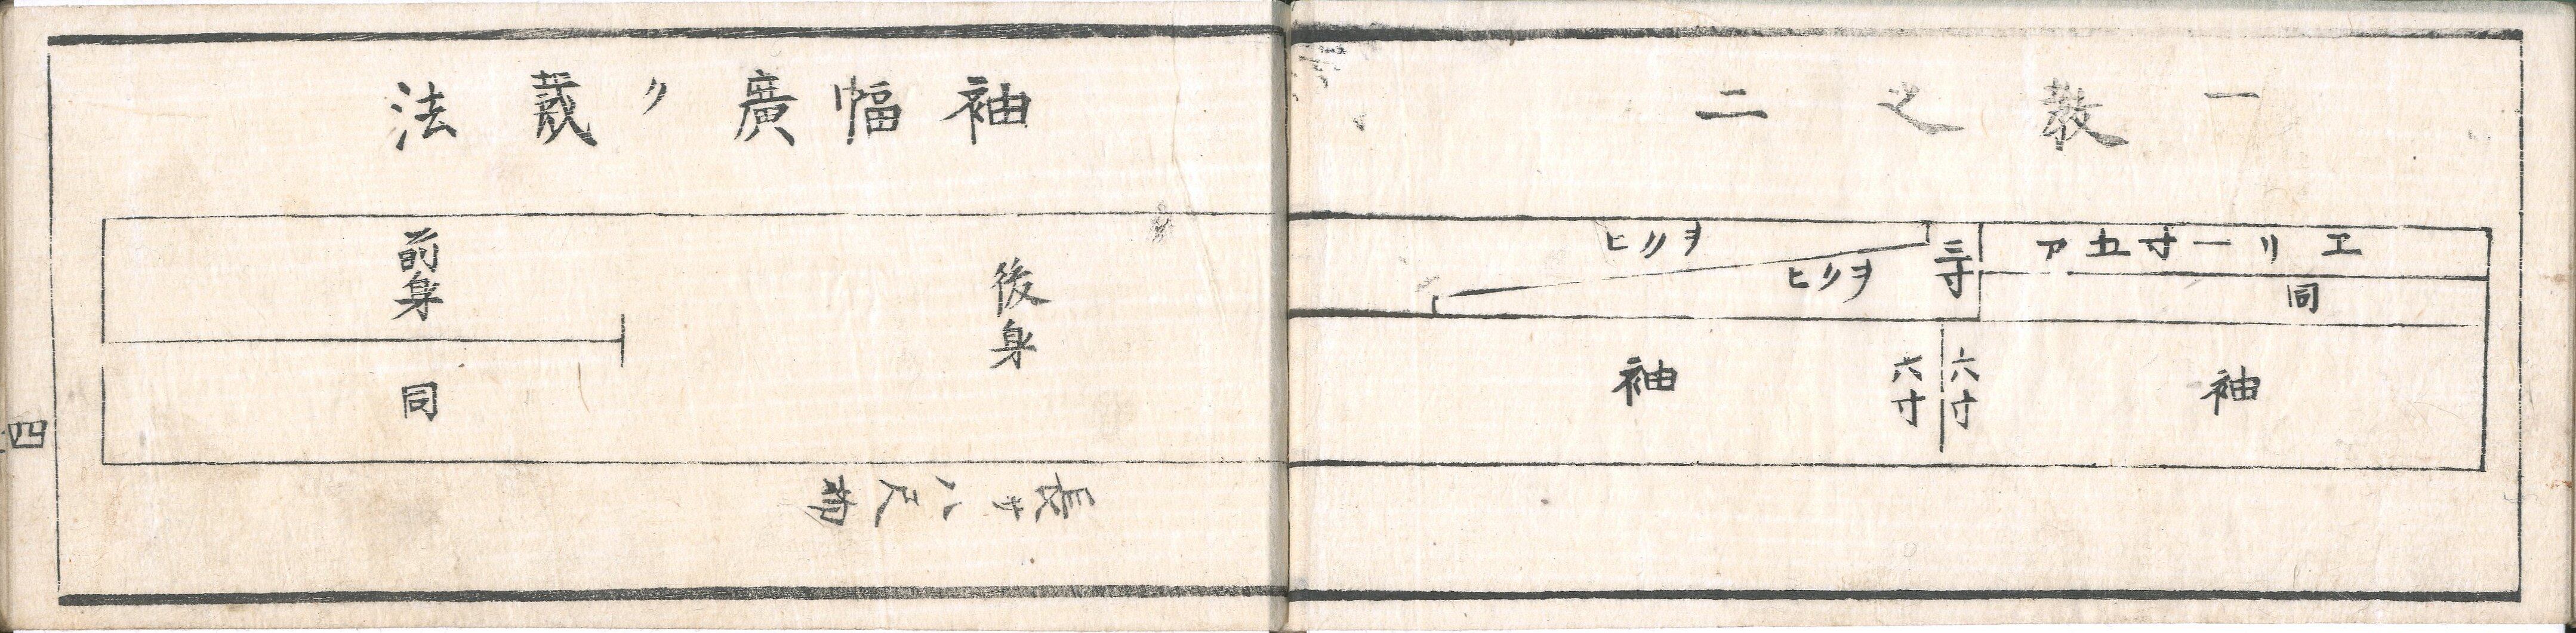 一裁之二
袖幅廣ク裁法
エリ一寸五ア
同
三寸
ヲリヒ
ヲリヒ
袖
六寸
六寸
袖
後身
前身
同
長サ八尺物
四